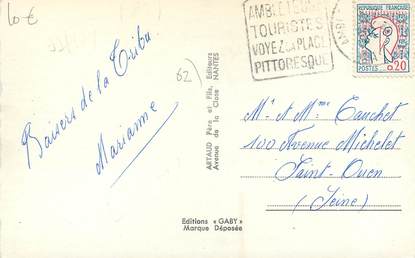 10€
AMBLETEUSE
TOURISTES
VOYEZ LA PLAGE
PITTORESQUE
REPUBLIQUE FRANÇAISE
POSTES 0,20
62
Baisers de la Tribu.
Marianne
ARTAUD Père et Fils, Editeurs
Avenue de la Close NANTES
Editions « GABY »
Marque Déposée
Mr et Mme Cauchet
100 Avenue Michelet
Saint-Ouen
(Seine)